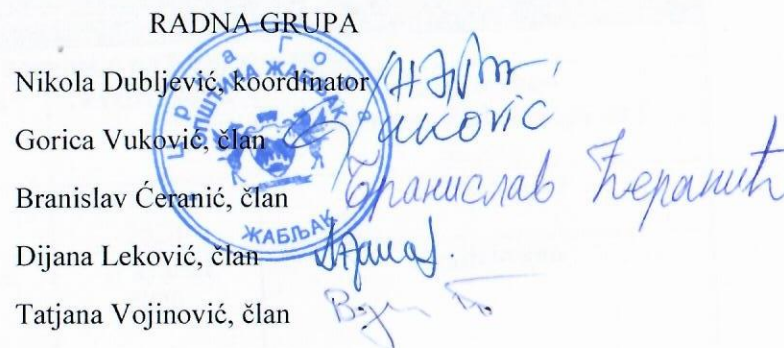 RADNA GRUPA
Nikola Dubljević, koordinator
Gorica Vuković, član Vuković
Branislav Ćeranić, član Бранислав Ћеранић
Dijana Leković, član
Tatjana Vojinović, član
Црна Гора
ОПШТИНА ЖАБЉАК
ЖАБЉАК